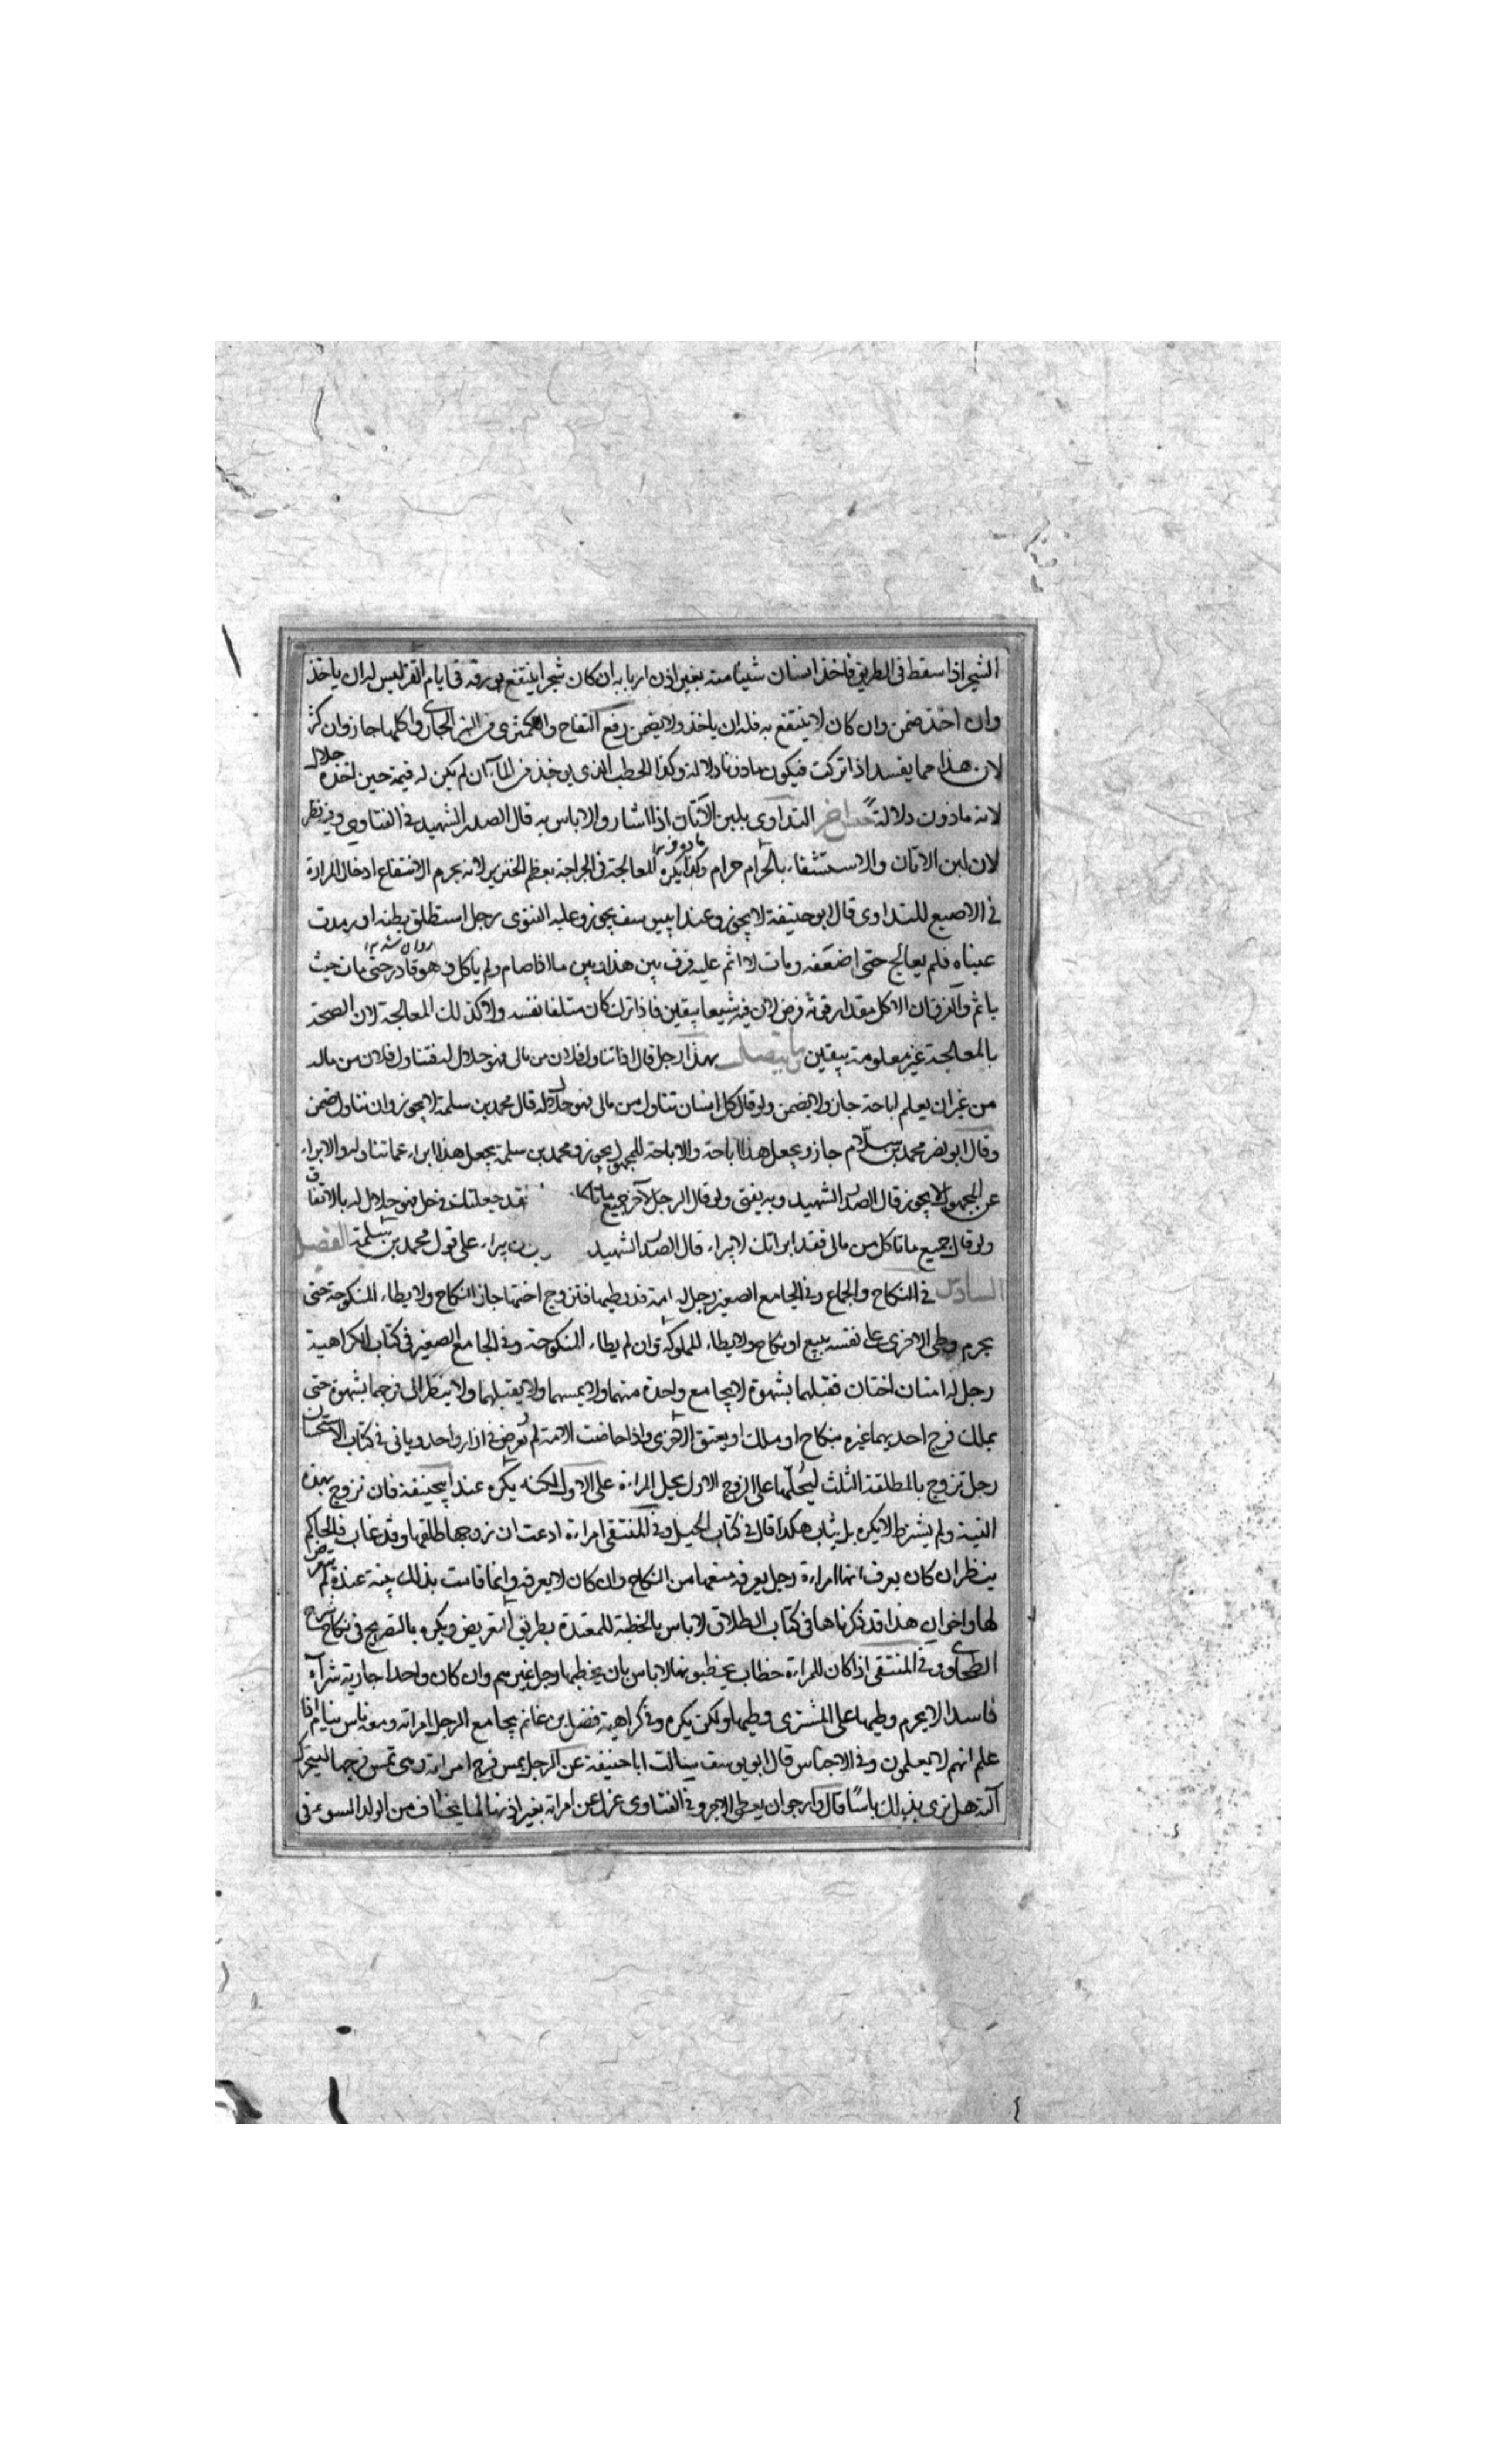 الشجر اذا سقط فى الطريق فاخذ انسان شيئا منه بغير اذن اربابه ان كان شجرا ينتفع بورقه فى ايام القز ليس له ان ياخذ
وان اخذ ضمن وان كان لا ينتفع به فله ان ياخذ ولا يضمن رفع التفاح والكمثرى من النهر الجارى واكلها جاز وان كثر
لان هذا مما يفسد اذا تركت فيكون ماذونا دلالة وكذا الحطب الذى يوخذ من الماء ان لم يكن له قيمة حين اخذه حلال
لانه ماذون دلالة التداوى بلبن الاتان اذا اشار والا باس به قال الصدر الشهيد فى الفتاوى وفيه نظر
لان لبن الاتان والاستشفاء بالحرام حرام وكذا يكره المعالجة فى الجراحة بعظم الخنزير لانه يحرم الانتفاع ادخال المرارة
فى الاصبع للتداوى قال ابو حنيفة لا يجوز وعند ابيوسف يجوز وعليه الفتوى رجل استطلق بطنه او رمدت
عيناه فلم يعالج حتى اضعفه ومات لا اثم عليه فرق بين هذا وبين ما اذا صام ولم ياكل وهو قادر حتى مات حيث
ياثم والفرق ان الاكل مقدار قوته فرض لان فيه شبعا بيقين فاذا ترك كان متلفا نفسه ولا كذلك المعالجة لان الصحة
بالمعالجة غير معلومة بيقين ما يتصل بهذا رجل قال اذا تناول فلان من مالى فهو حلال له فتناول فلان من ماله
من غير ان يعلم اباحة جاز ولا يضمن ولو قال كل انسان تناول من مالى فهو حلال له قال محمد بن سلمة لا يجوز وان تناول ضمن
وقال ابو نصر محمد بن سلام جاز ويجعل هذا اباحة والاباحة للمجهول يجوز ومحمد بن سلمة يجعل هذا ابراء عما تناوله والابراء
عن المجهول لا يجوز قال الصدر الشهيد وبه يفتى ولو قال الرجل لآخر جميع ما تاكل فقد جعلتك فى حل فهو حلال له بالاتفاق
ولو قال جميع ما تاكل من مالى فقد ابراتك لا يبراء قال الصدر الشهيد يبراء على قول محمد بن سلمة الفصل
السادس فى النكاح والجماع وفى الجامع الصغير رجل له امة قد يطيها فتزوج اختها جاز النكاح ولا يطاء المنكوحة حتى
يحرم وطى الاخرى على نفسه ببيع او نكاح ولا يطاء المملوكة وان لم يطاء المنكوحة وفى الجامع الصغير فى كتاب الكراهية
رجل له امتان اختان فقبلهما بشهوة لا يجامع واحدة منهما ولا يمسهما ولا يقبلهما ولا ينظر الى فرجهما بشهوة حتى
يملك فرج احديهما غيره بنكاح او ملك او يعتق الاخرى واذا حاضت الامة لم تعرض فى ازار واحد وياتى فى كتاب الاستحسان
رجل تزوج بالمطلقة الثلث ليحللها على الزوج الاول يحل المراءة على الاول لكنه يكره عند ابيحنيفة فان تزوج بهذه
النية ولم يشترط لا يكره بل يثاب هكذا قال فى كتاب الحيل وفى المنتقى امراءة ادعت ان زوجها طلقها وقد غاب فالحاكم
ينظر ان كان يعرف انها امراءة رجل يعرفه منعها من النكاح وان كان لا يعرفه وانما قامت بذلك بينة عنده لم يتعرض
لها واخوات هذا قد ذكرناها فى كتاب الطلاق لا باس بالخطبة للمعتدة بطريق التعريض ويكره بالتصريح فى نكاح شرح
الطحاوى وفى المنتقى اذا كان للمراءة خطاب يخطبونها لا باس بان يخطبها رجل غيرهم وان كان واحدا جارية شرآء
فاسدا لا يحرم وطيها على المشترى وطيها ولكن يكره وفى كراهية فضل بن غانم يجامع الرجل امراته ومعه ناس نيام اذا
علم انهم لا يعلمون وفى الاجناس قال ابو يوسف سالت ابا حنيفة عن الرجل يمس فرج امراته وهى تمس فرجها ليتحرك
آلته هل ترى بذلك باسا قال وارجو ان يعطى الاجر وفى الفتاوى عزل عن امراته بغير اذنها لما يخاف من الولد السوء فى